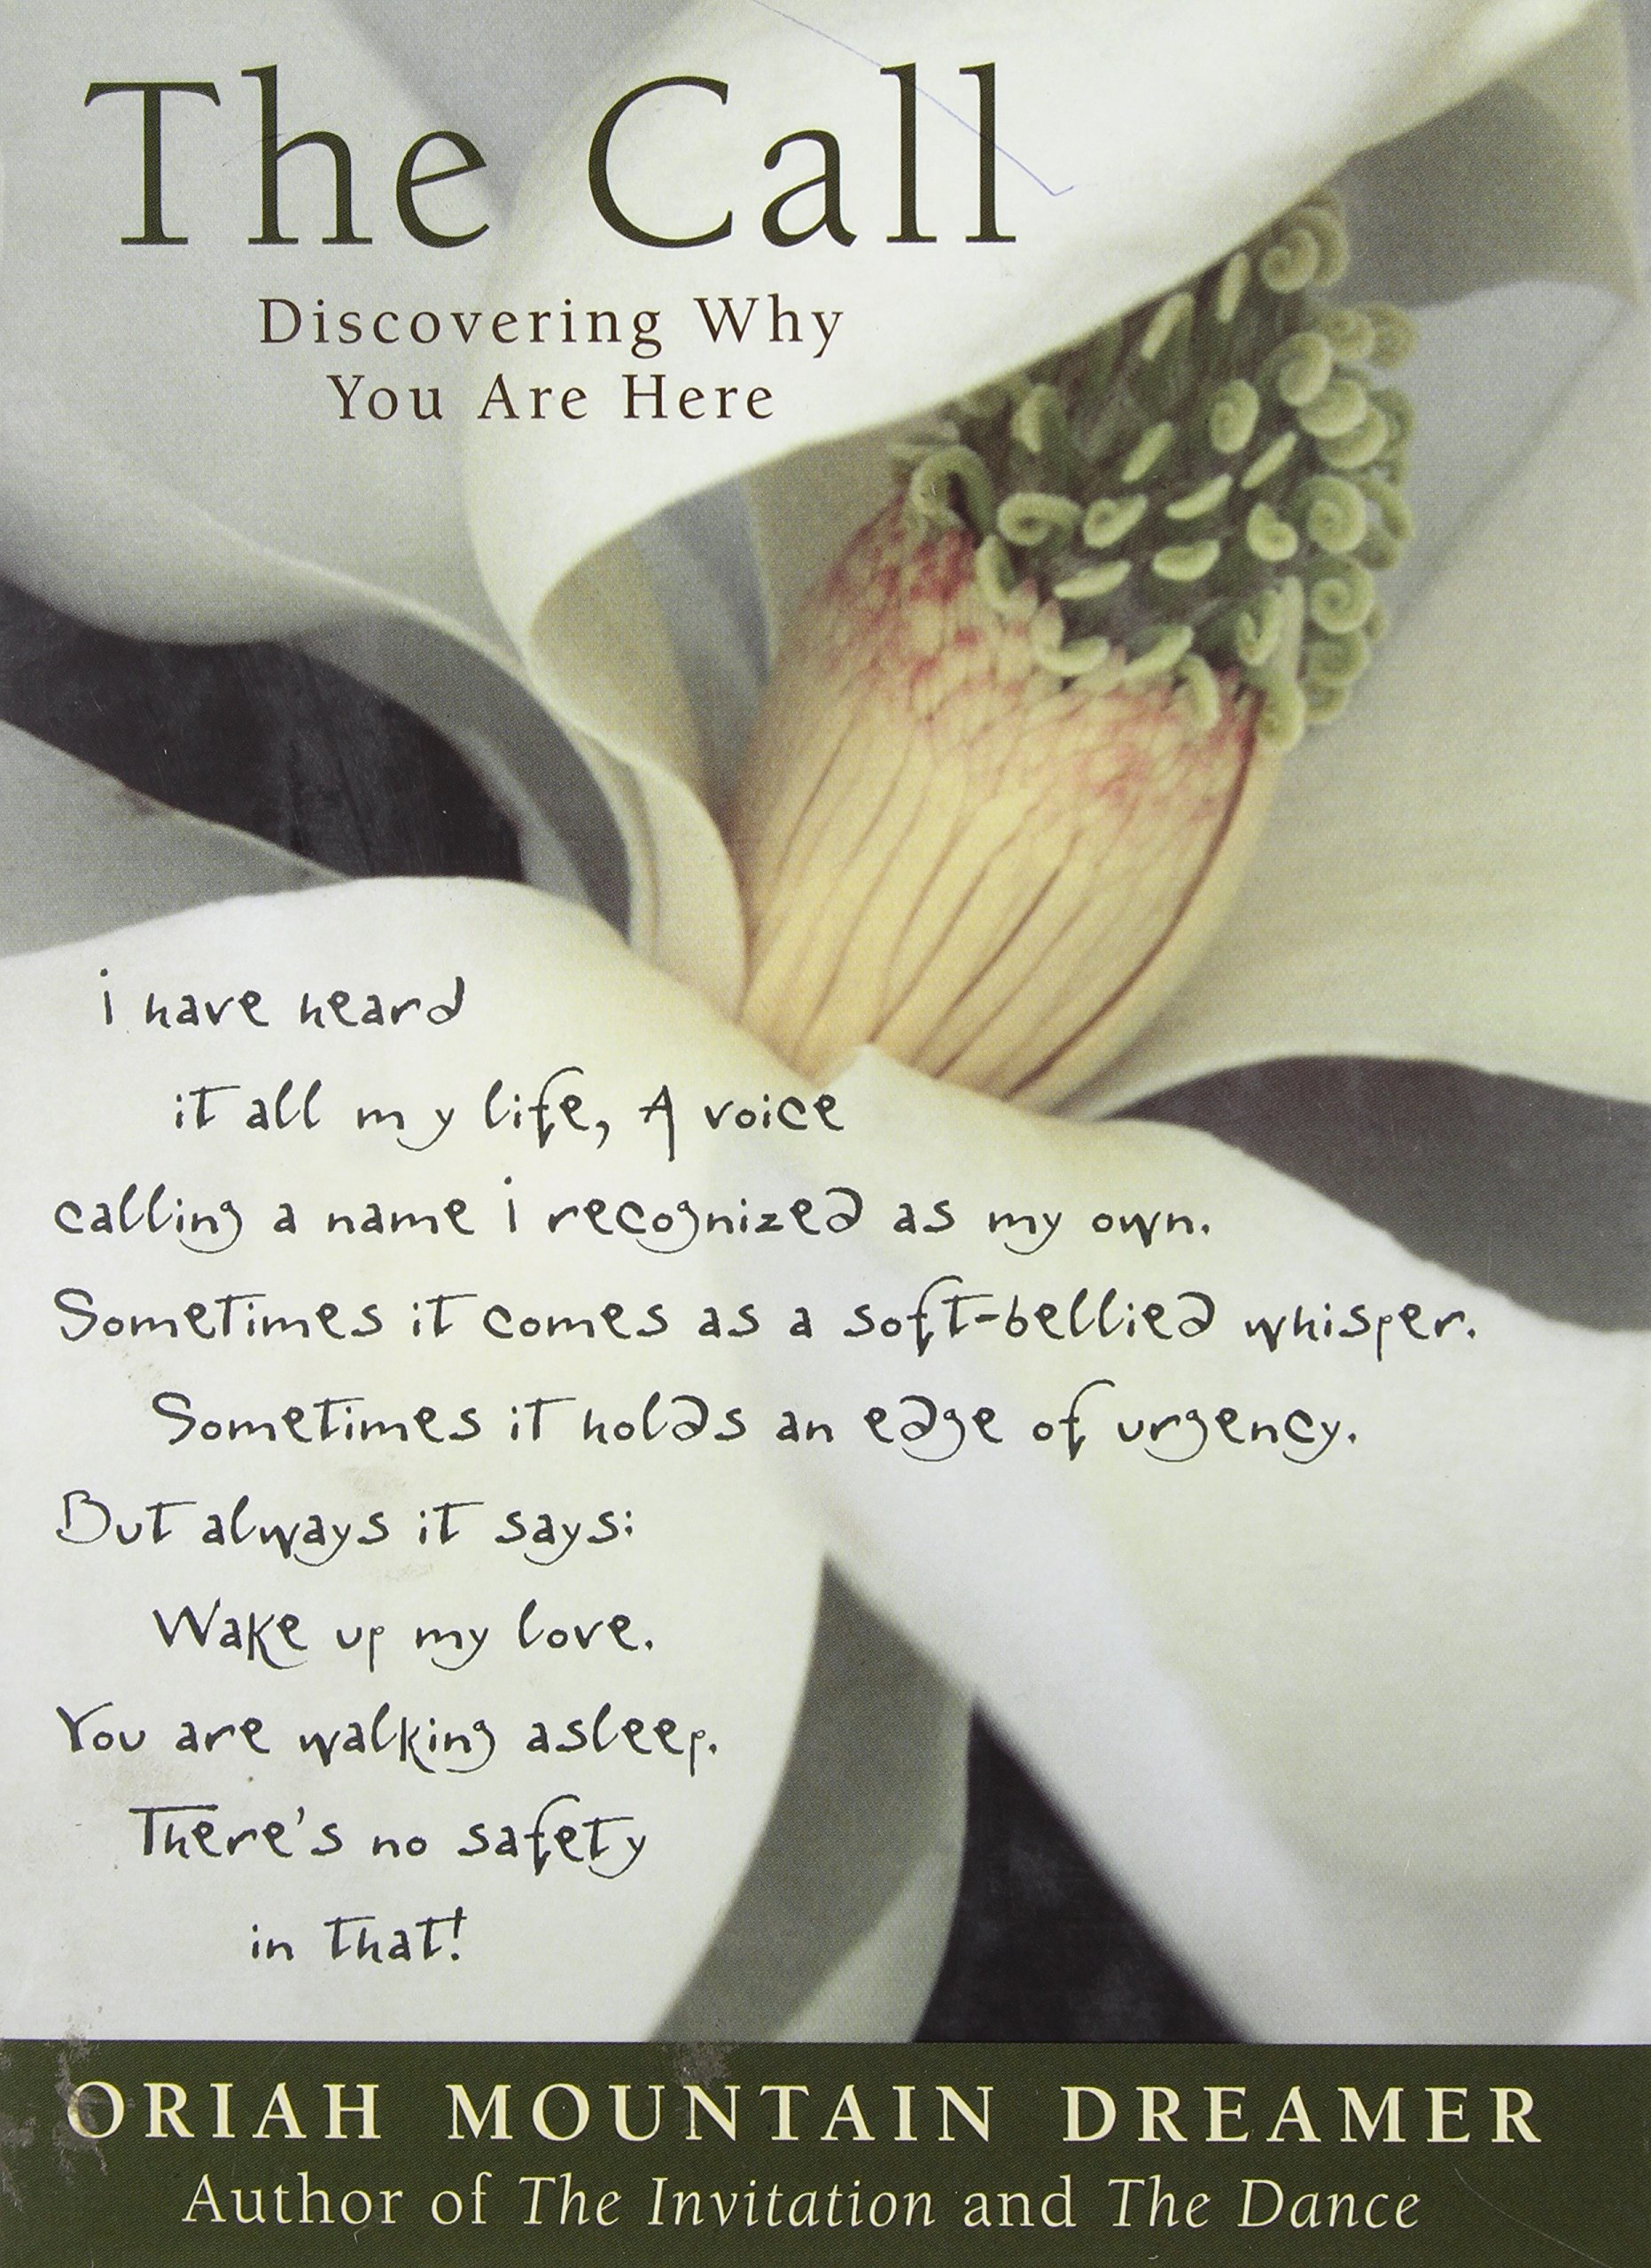 The Call
Discovering Why
You Are Here
i have heard
it all my life, A voice
calling a name i recognized as my own.
Sometimes it comes as a soft-bellied whisper.
Sometimes it holds an edge of urgency.
But always it says:
Wake up my love.
You are walking asleep.
There's no safety
in that!
ORIAH MOUNTAIN DREAMER
Author of The Invitation and The Dance